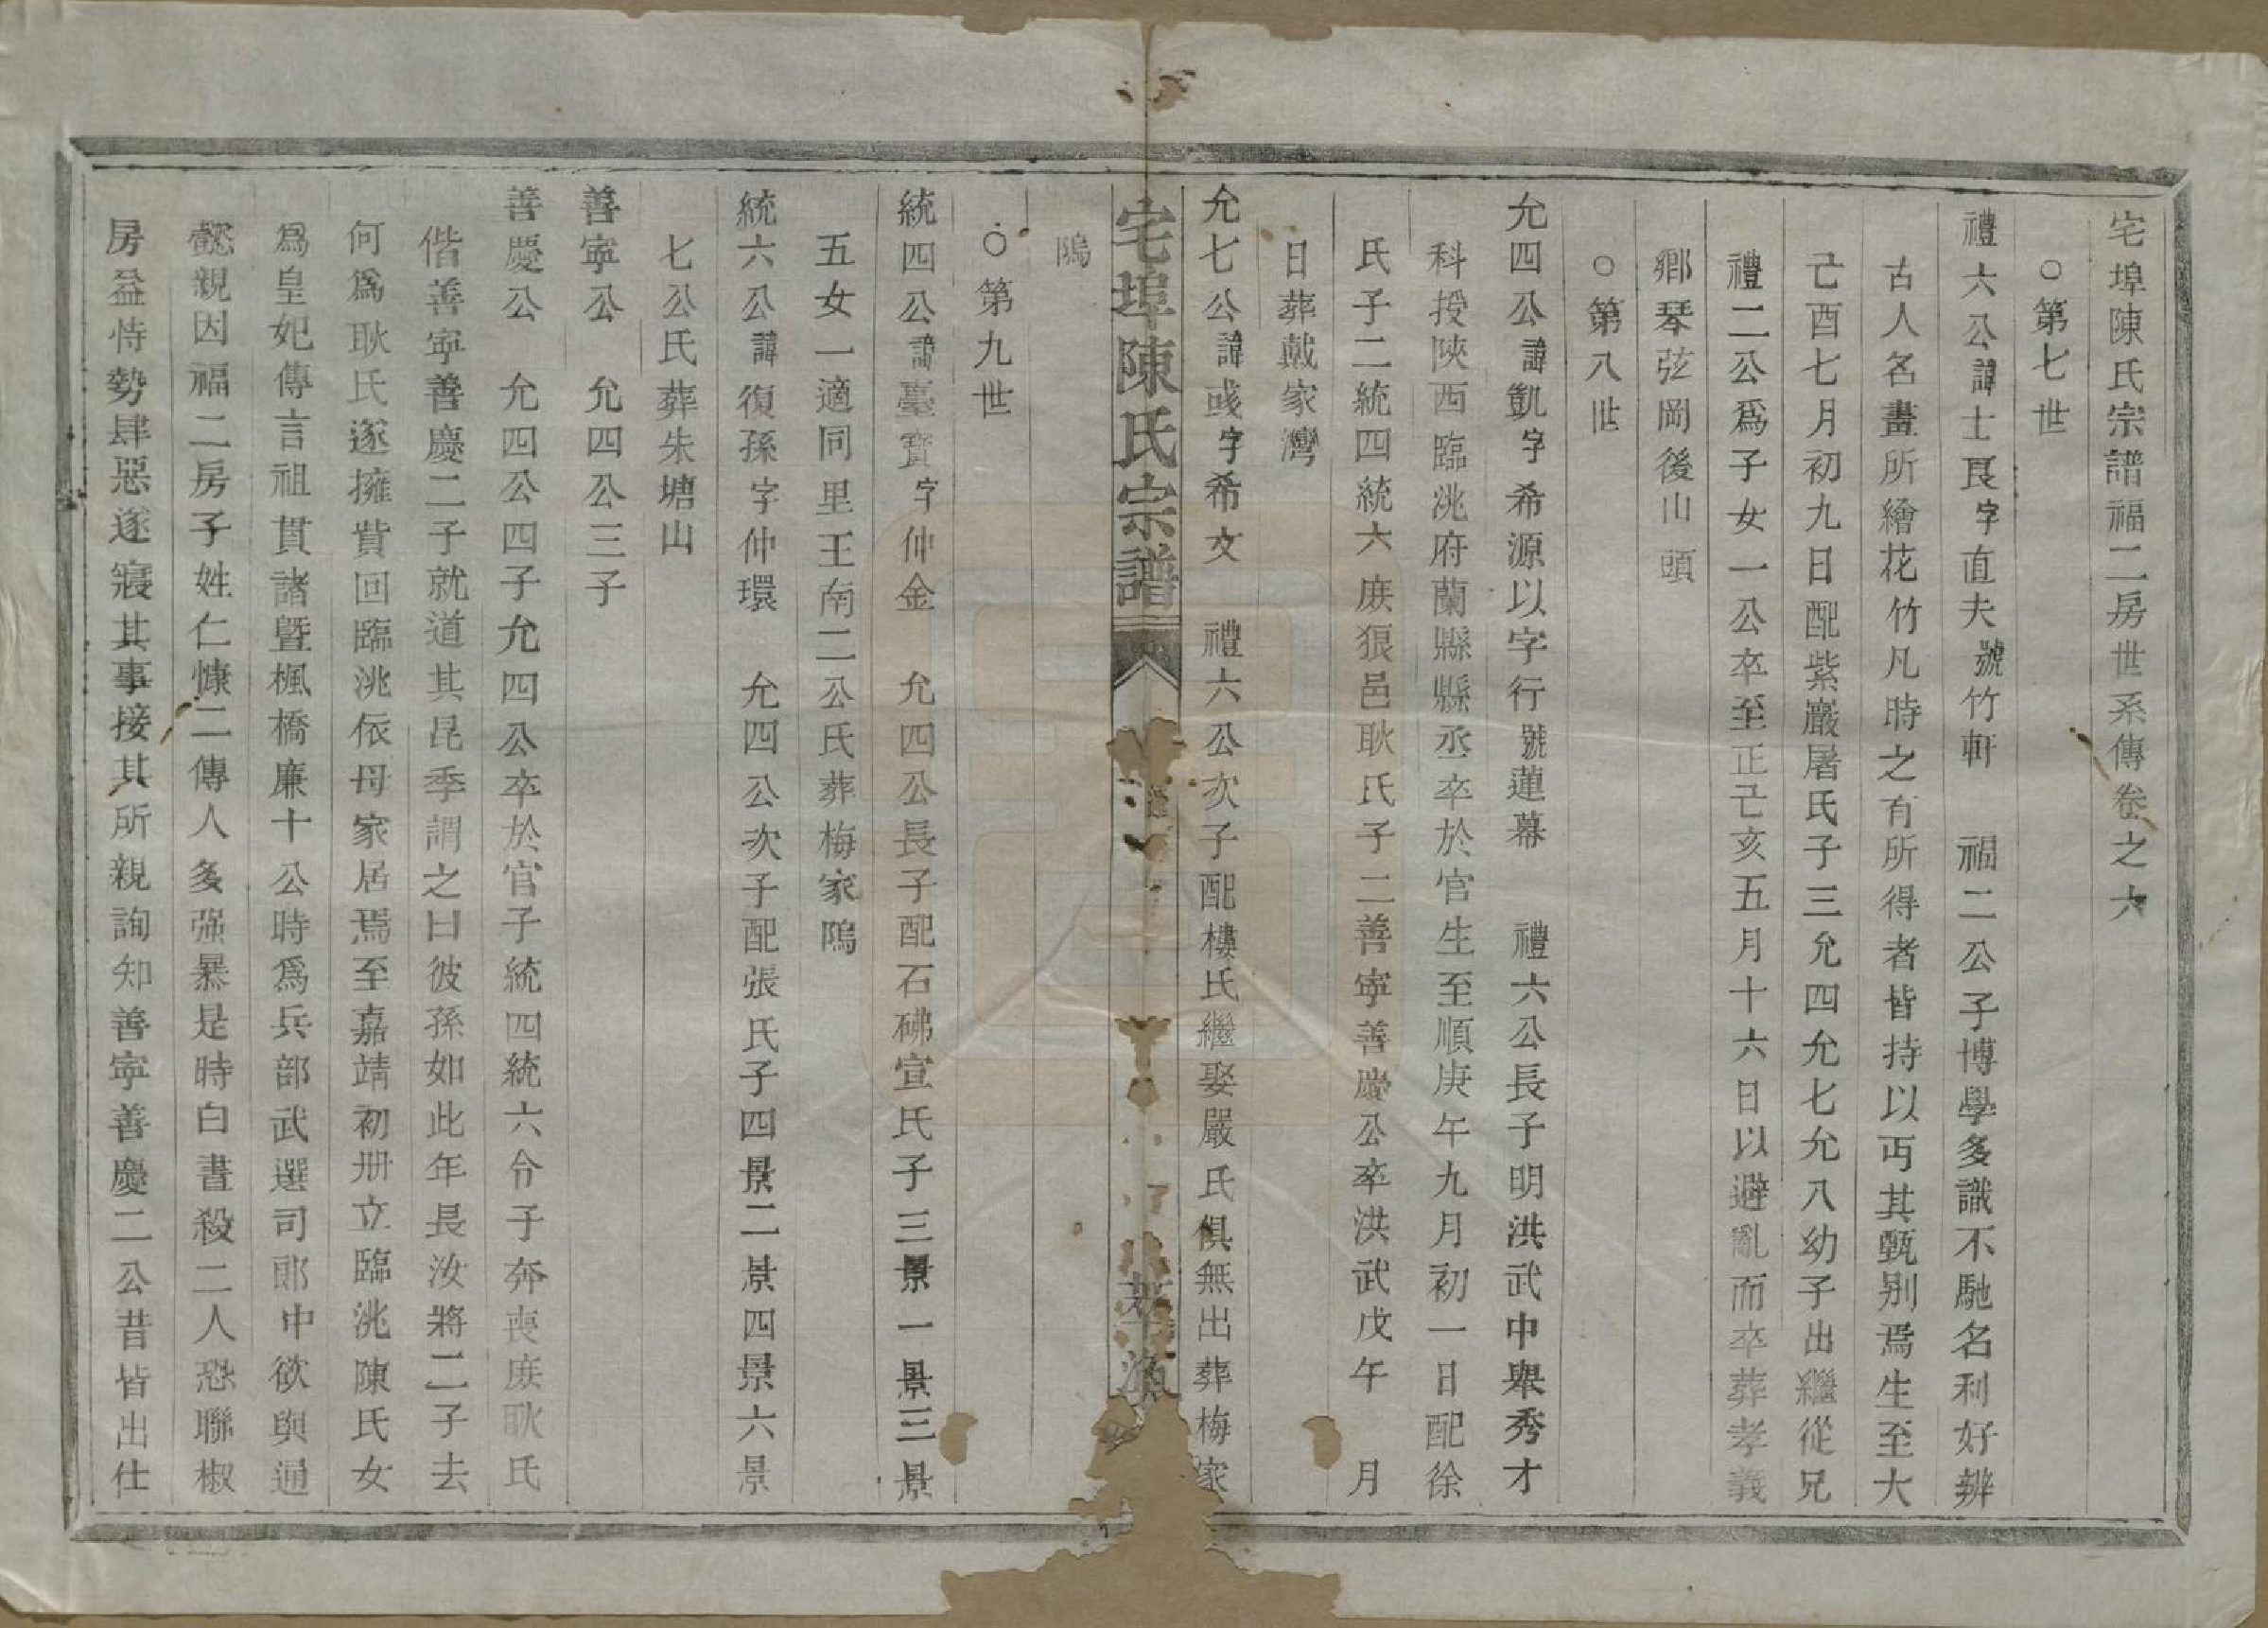 宅埠陳氏宗譜福二房世系傳卷之六
○第七世
禮六公諱士良字直夫號竹軒 福二公子博學多識不馳名利好辨
古人名畫所繪花竹凡時之有所得者皆持以丏其甄别焉生至大
己酉七月初九日配紫巖屠氏子三允四允七允八幼子出繼從兄
禮二公爲子女一公卒至正己亥五月十六日以避亂而卒葬孝義
鄉琴弦岡後山頭
○第八世
允四公諱凱字希源以字行號蓮幕 禮六公長子明洪武中舉秀才
科授陝西臨洮府蘭縣縣丞卒於官生至順庚午九月初一日配徐
氏子二統四統六庶狼邑耿氏子二善寧善慶公卒洪武戊午 月
日葬戴家灣
允七公諱彧字希文 禮六公次子配樓氏繼娶嚴氏俱無出葬梅家
塢
宅埠陳氏宗譜
○第九世
統四公諱臺寶字仲金 允四公長子配石硴宣氏子三景一景三景
五女一適同里王南二公氏葬梅家塢
統六公諱復孫字仲環 允四公次子配張氏子四景二景四景六景
七公氏葬朱塘山
善寧公 允四公三子
善慶公 允四公四子允四公卒於官子統四統六令子奔喪庶耿氏
偕善寧善慶二子就道其昆季謂之曰彼孫如此年長汝將二子去
何爲耿氏遂擁貲回臨洮依母家居焉至嘉靖初冊立臨洮陳氏女
爲皇妃傳言祖貫諸曁楓橋廉十公時爲兵部武選司郎中欲與通
懿親因福二房子姓仁慷二傳人多强暴是時白晝殺二人恐聯椒
房益恃勢肆惡遂寢其事接其所親詢知善寧善慶二公昔皆出仕